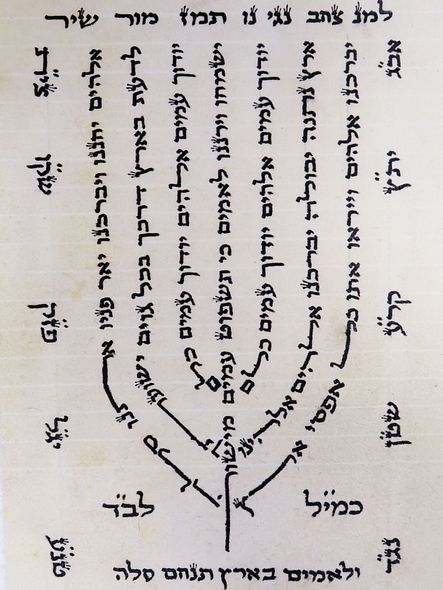 למנ צחב נגי נו תמז מור שיר
אב״ג
ית״ץ
קר״ע
שט״ן
נג״ד
אלהים יחננו ויברכנו יאר פניו אתנו סלה
לדעת בארץ דרכך בכל גוים ישועתך
יודוך עמים אלהים יודוך עמים כלם
ישמחו וירננו לאמים כי תשפוט עמים מישור
יודוך עמים אלהים יודוך עמים כלם
ארץ נתנה יבולה יברכנו אלהים אלהינו
יברכנו אלהים וייראו אתו כל אפסי ארץ
צי״ת
שק״ו
פז״ק
יג״ל
טנ״ע
כמי״ל
לב״ד
ולאמים בארץ תנחם סלה